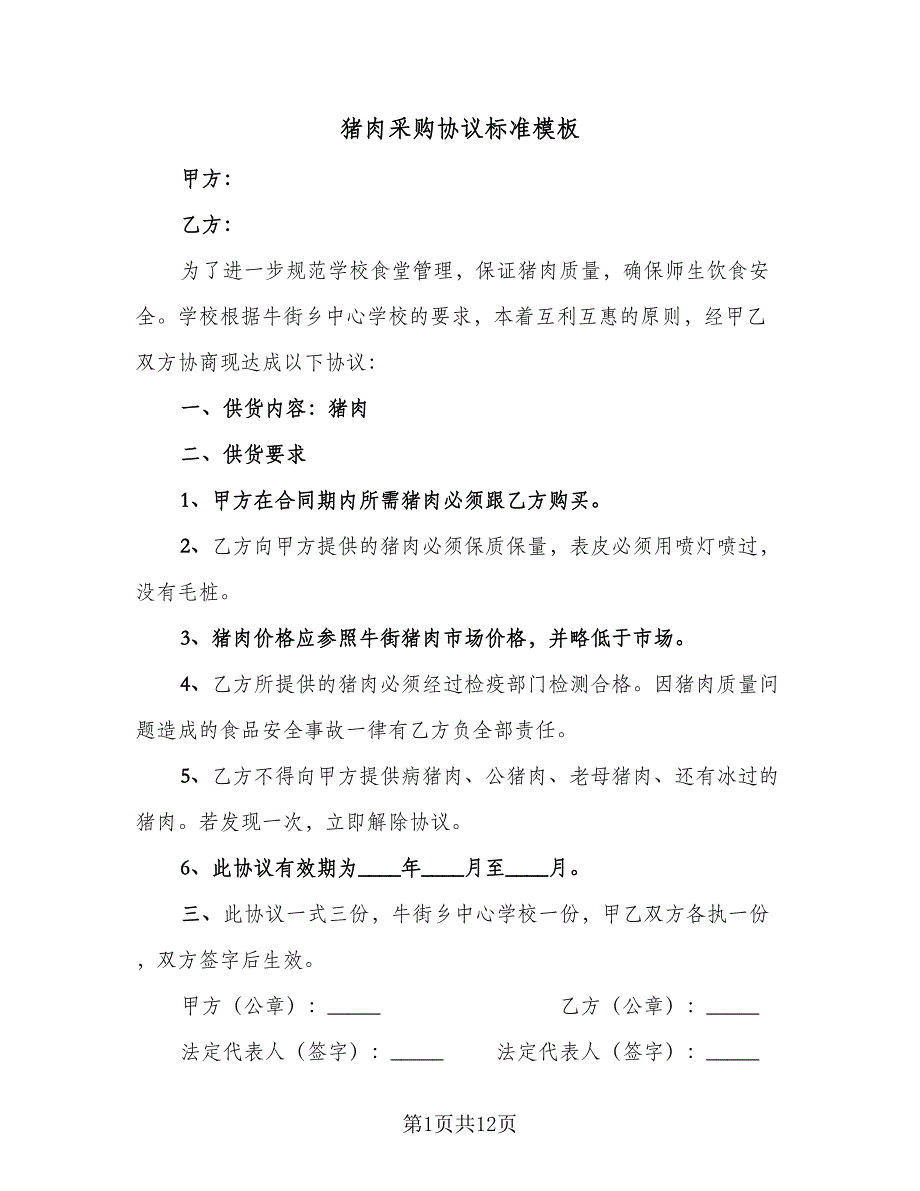 猪肉采购协议标准模板
甲方：
乙方：
为了进一步规范学校食堂管理，保证猪肉质量，确保师生饮食安
全。学校根据牛街乡中心学校的要求，本着互利互惠的原则，经甲乙
双方协商现达成以下协议：
一、供货内容：猪肉
二、供货要求
1、甲方在合同期内所需猪肉必须跟乙方购买。
2、乙方向甲方提供的猪肉必须保质保量，表皮必须用喷灯喷过，
没有毛桩。
3、猪肉价格应参照牛街猪肉市场价格，并略低于市场。
4、乙方所提供的猪肉必须经过检疫部门检测合格。因猪肉质量问
题造成的食品安全事故一律有乙方负全部责任。
5、乙方不得向甲方提供病猪肉、公猪肉、老母猪肉、还有冰过的
猪肉。若发现一次，立即解除协议。
6、此协议有效期为____年____月至____月。
三、此协议一式三份，牛街乡中心学校一份，甲乙双方各执一份
，双方签字后生效。
甲方（公章）：_____ 乙方（公章）：_____
法定代表人（签字）：_____ 法定代表人（签字）：_____
第1页共12页